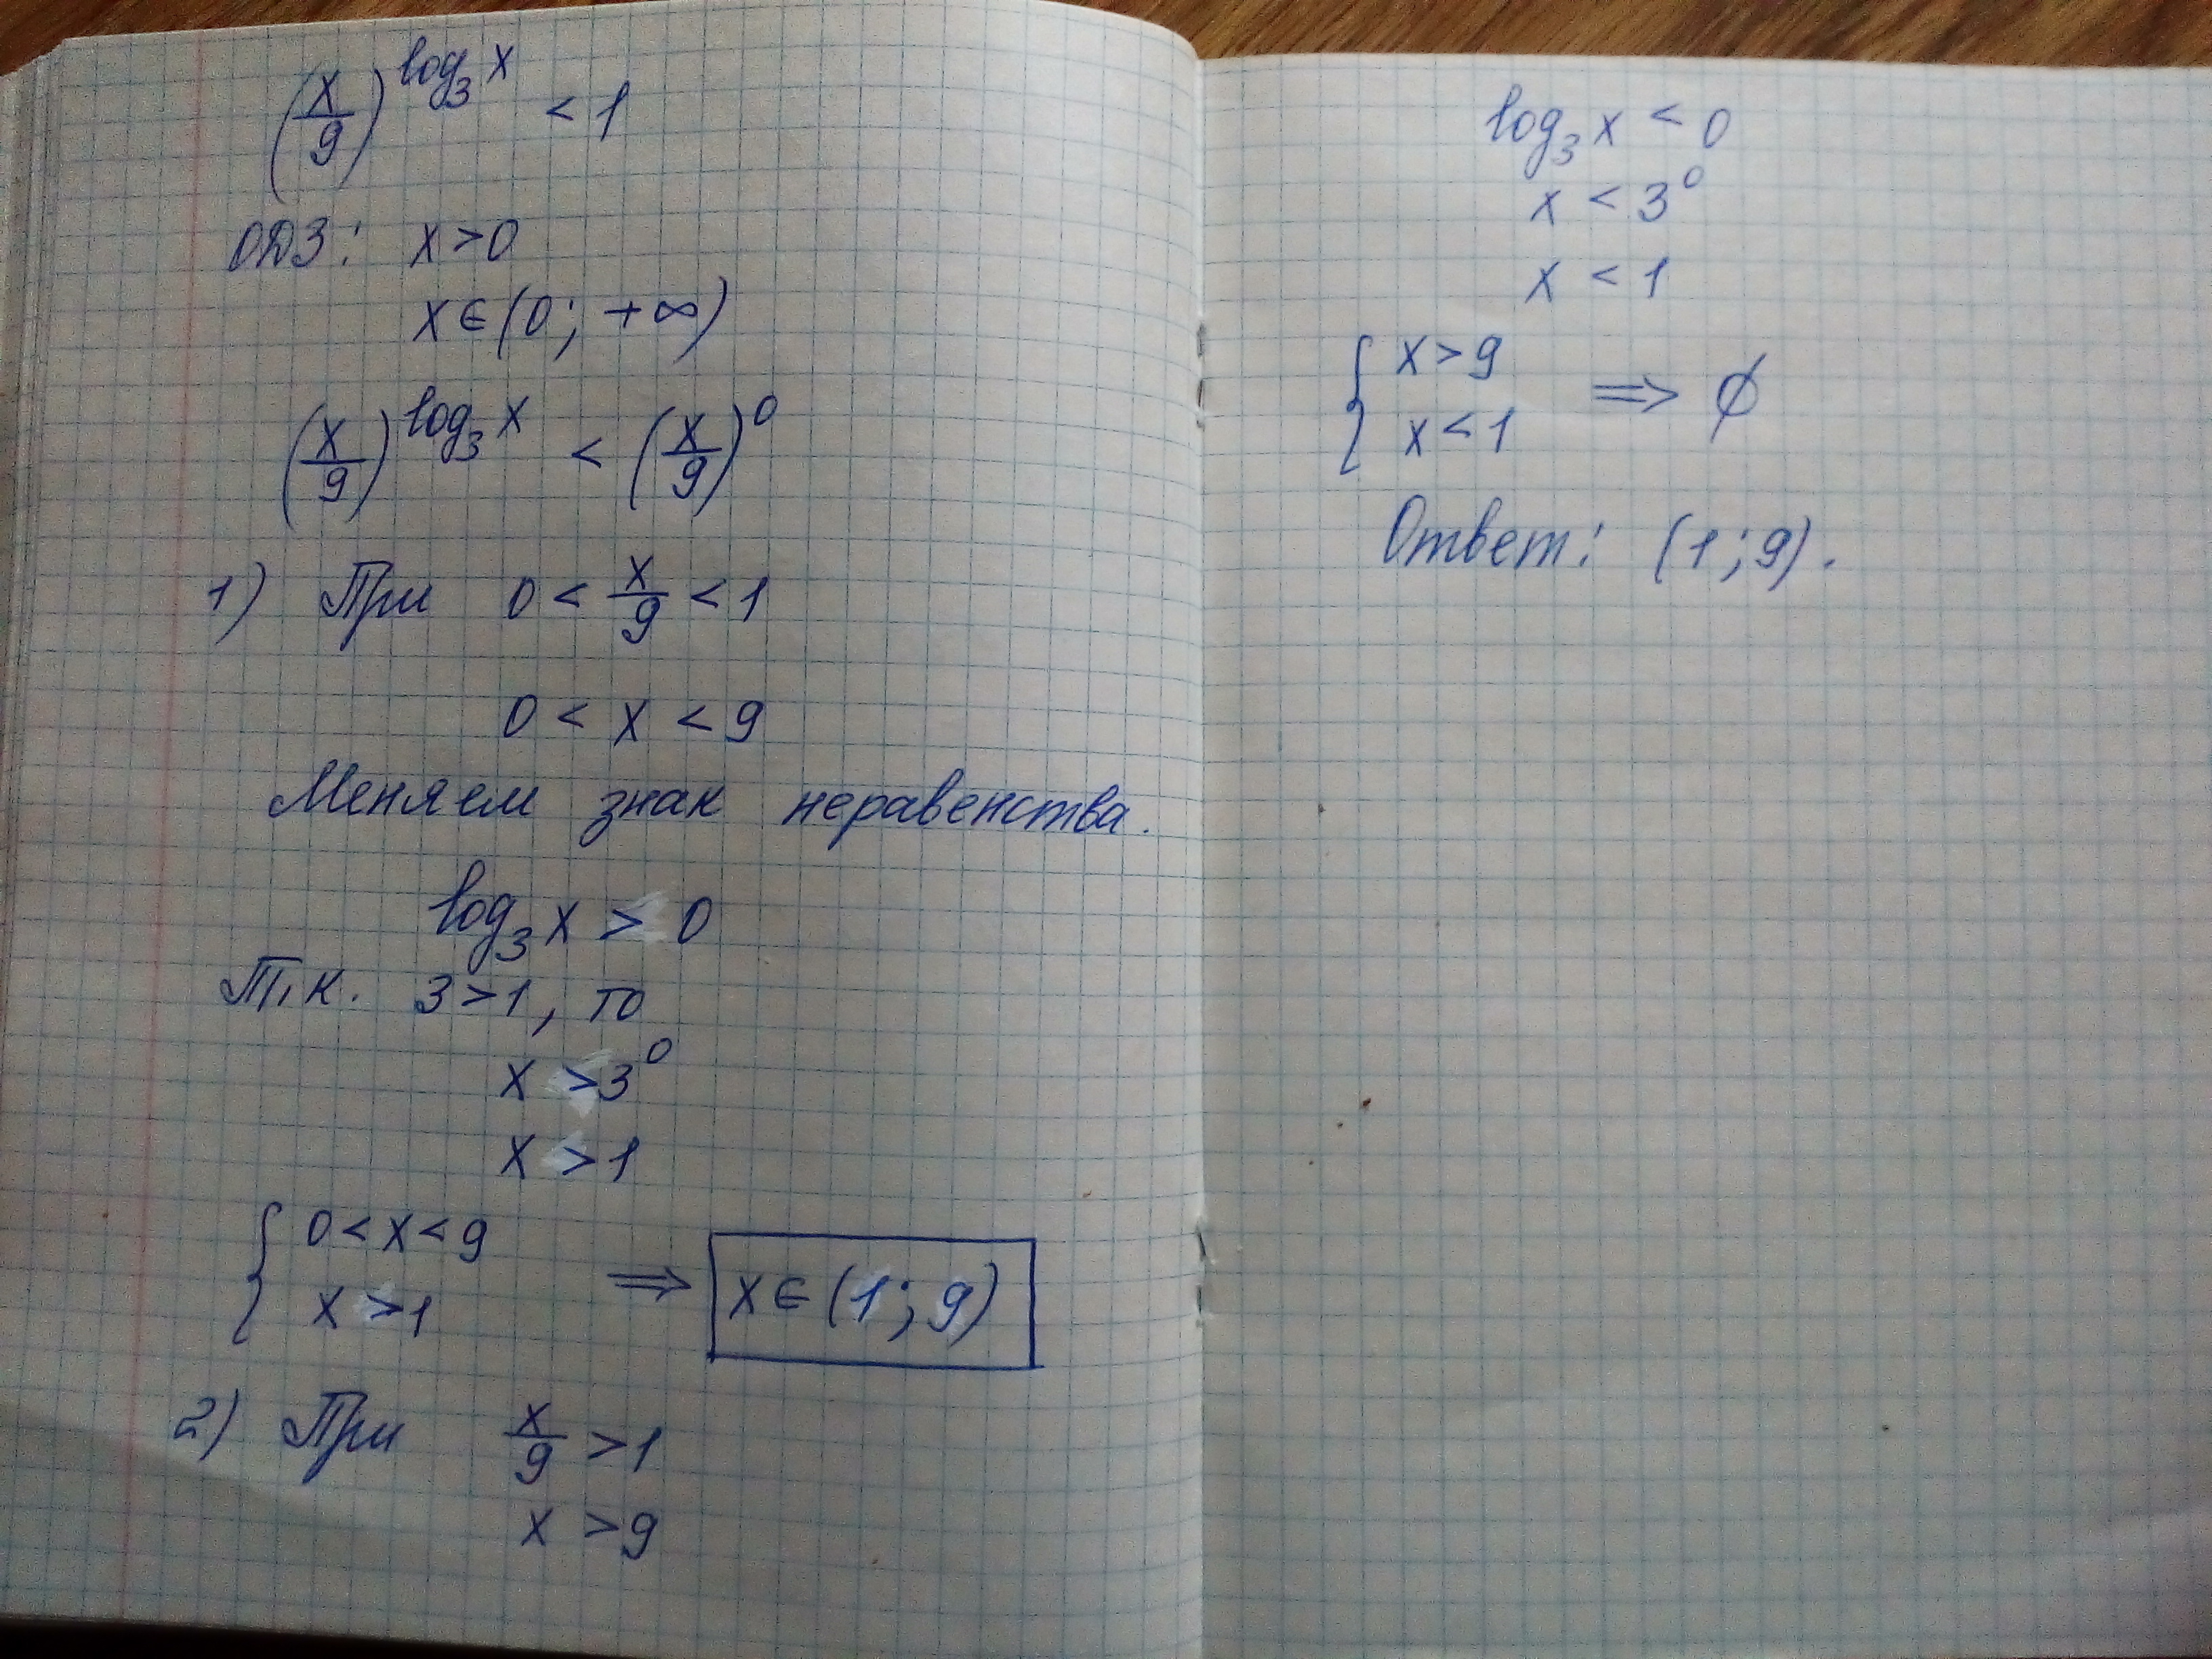 (x/9)^log₃x < 1
ОДЗ: x>0
x∈(0; +∞)
(x/9)^log₃x < (x/9)⁰
1) При 0 < x/9 < 1
0 < x < 9
Меняем знак неравенства.
log₃x > 0
Т.к. 3>1, то
x > 3⁰
x > 1
{ 0<x<9
x>1 ⇒ x∈(1; 9)
2) При x/9 > 1
x > 9
log₃x < 0
x < 3⁰
x < 1
{ x>9
x<1 ⇒ ∅
Ответ: (1; 9).